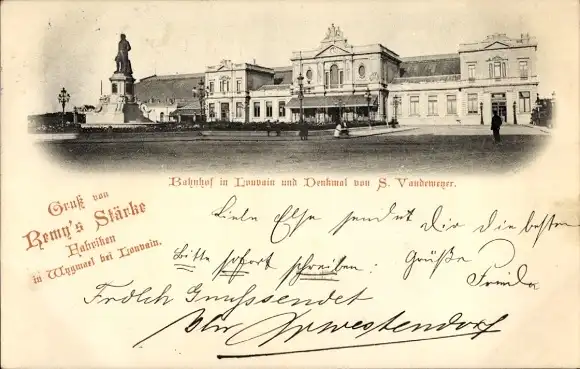 Bahnhof in Louvain und Denkmal von S. Vandeweyer.
Gruß von
Remy's Stärke
Fabriken
in Wygmael bei Louvain.
Liebe Else sendet Dir die besten
Grüße Frieda
Bitte sofort schreiben:
Frdlch Gruss sendet
Westendorf